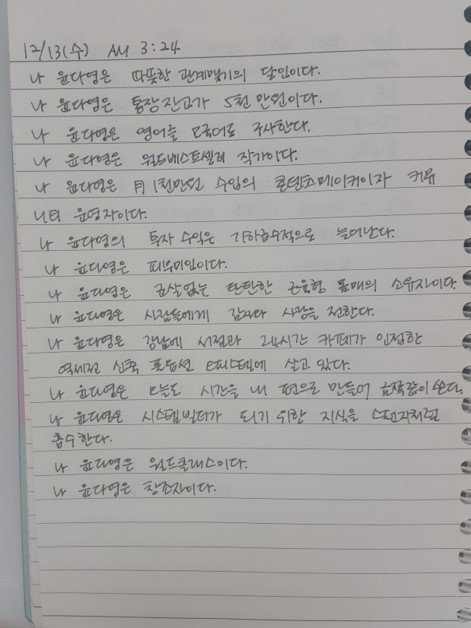 12/13(수) AM 3:24
나 윤다영은 따뜻한 관계맺기의 달인이다.
나 윤다영은 통장잔고가 5천만원이다.
나 윤다영은 영어를 모국어로 구사한다.
나 윤다영은 월드베스트셀러 작가이다.
나 윤다영은 月 1천만원 수입의 콘텐츠메이커이자 커뮤
니티 운영자이다.
나 윤다영의 투자수익은 기하급수적으로 늘어난다.
나 윤다영은 피부미인이다.
나 윤다영은 군살없는 탄탄한 근육형 몸매의 소유자이다
나 윤다영은 사람들에게 감사와 사랑을 전한다.
나 윤다영은 강남에 서점과 24시간 카페가 인접한
역세권 신축 풀옵션 오피스텔에 살고 있다.
나 윤다영은 오늘도 시간을 내 편으로 만들어 금쪽같이 쓴다.
나 윤다영은 시스템빌더가 되기 위한 지식을 스펀지처럼
흡수한다.
나 윤다영은 월드클래스이다.
나 윤다영은 창조자이다.